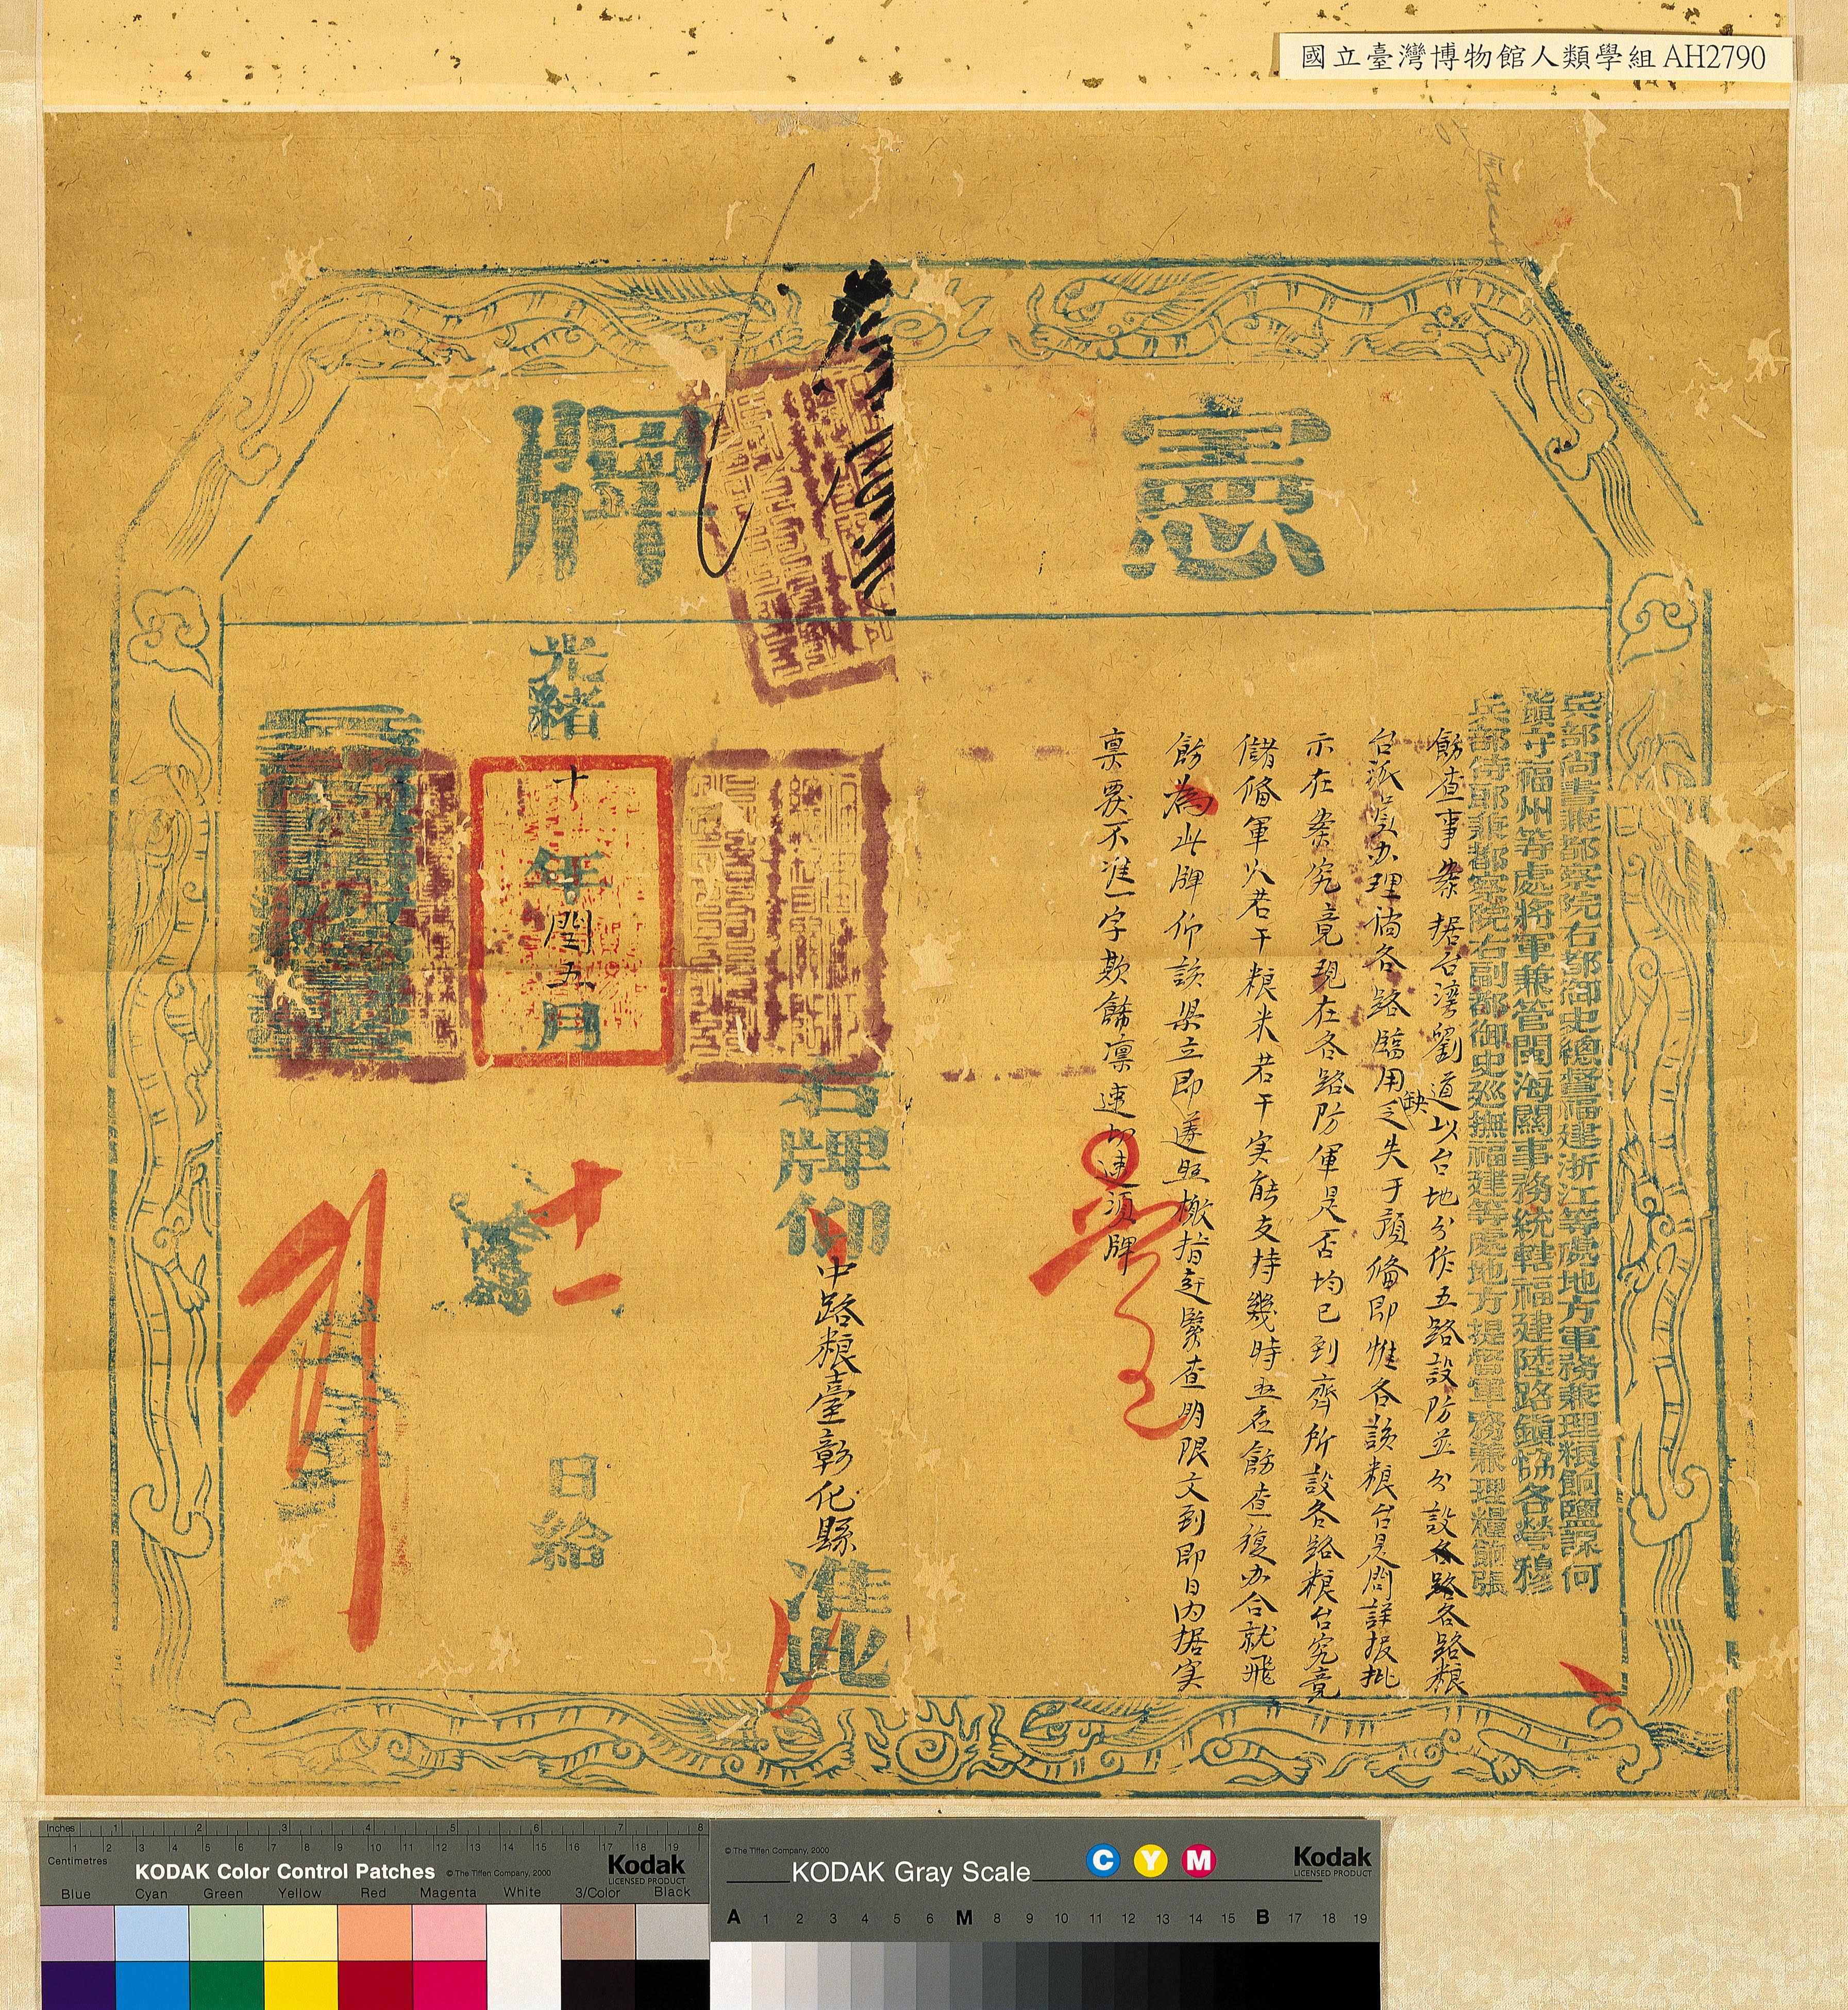 國立臺灣博物館人類學組 AH2790
憲牌
兵部尚書兼都察院右都御史總督福建浙江等處地方軍務兼理糧餉鹽課何
鎮守福州等處將軍兼管閩海關事務統轄福建陸路鎮協各營穆
兵部侍郎兼都察院右副都御史巡撫福建等處地方提督軍務兼理糧餉張
飭查事案据台湾劉道以台地分作五路設防並分設各路各路粮
台派員办理倘各路臨用缺乏失于預偹即惟各該粮台是問詳报批
示在案究竟現在各路防軍是否均已到齊所設各路粮台究竟
儲偹軍火若干粮米若干实能支持幾時亟应飭查複办合就飛
飭為此牌仰該縣立即遵照檄指赶緊查明限文到即日内据实
禀覆不准一字欺飾凛速切速須牌
右牌仰中路粮臺彰化縣准此
光緒十年閏五月十一日給
Inches 1 2 3 4 5 6 7 8
Centimetres 1 2 3 4 5 6 7 8 9 10 11 12 13 14 15 16 17 18 19
KODAK Color Control Patches © The Tiffen Company, 2000 Kodak
LICENSED PRODUCT
Blue Cyan Green Yellow Red Magenta White 3/Color Black
© The Tiffen Company, 2000
KODAK Gray Scale C Y M Kodak
LICENSED PRODUCT
A 1 2 3 4 5 6 M 8 9 10 11 12 13 14 15 B 17 18 19